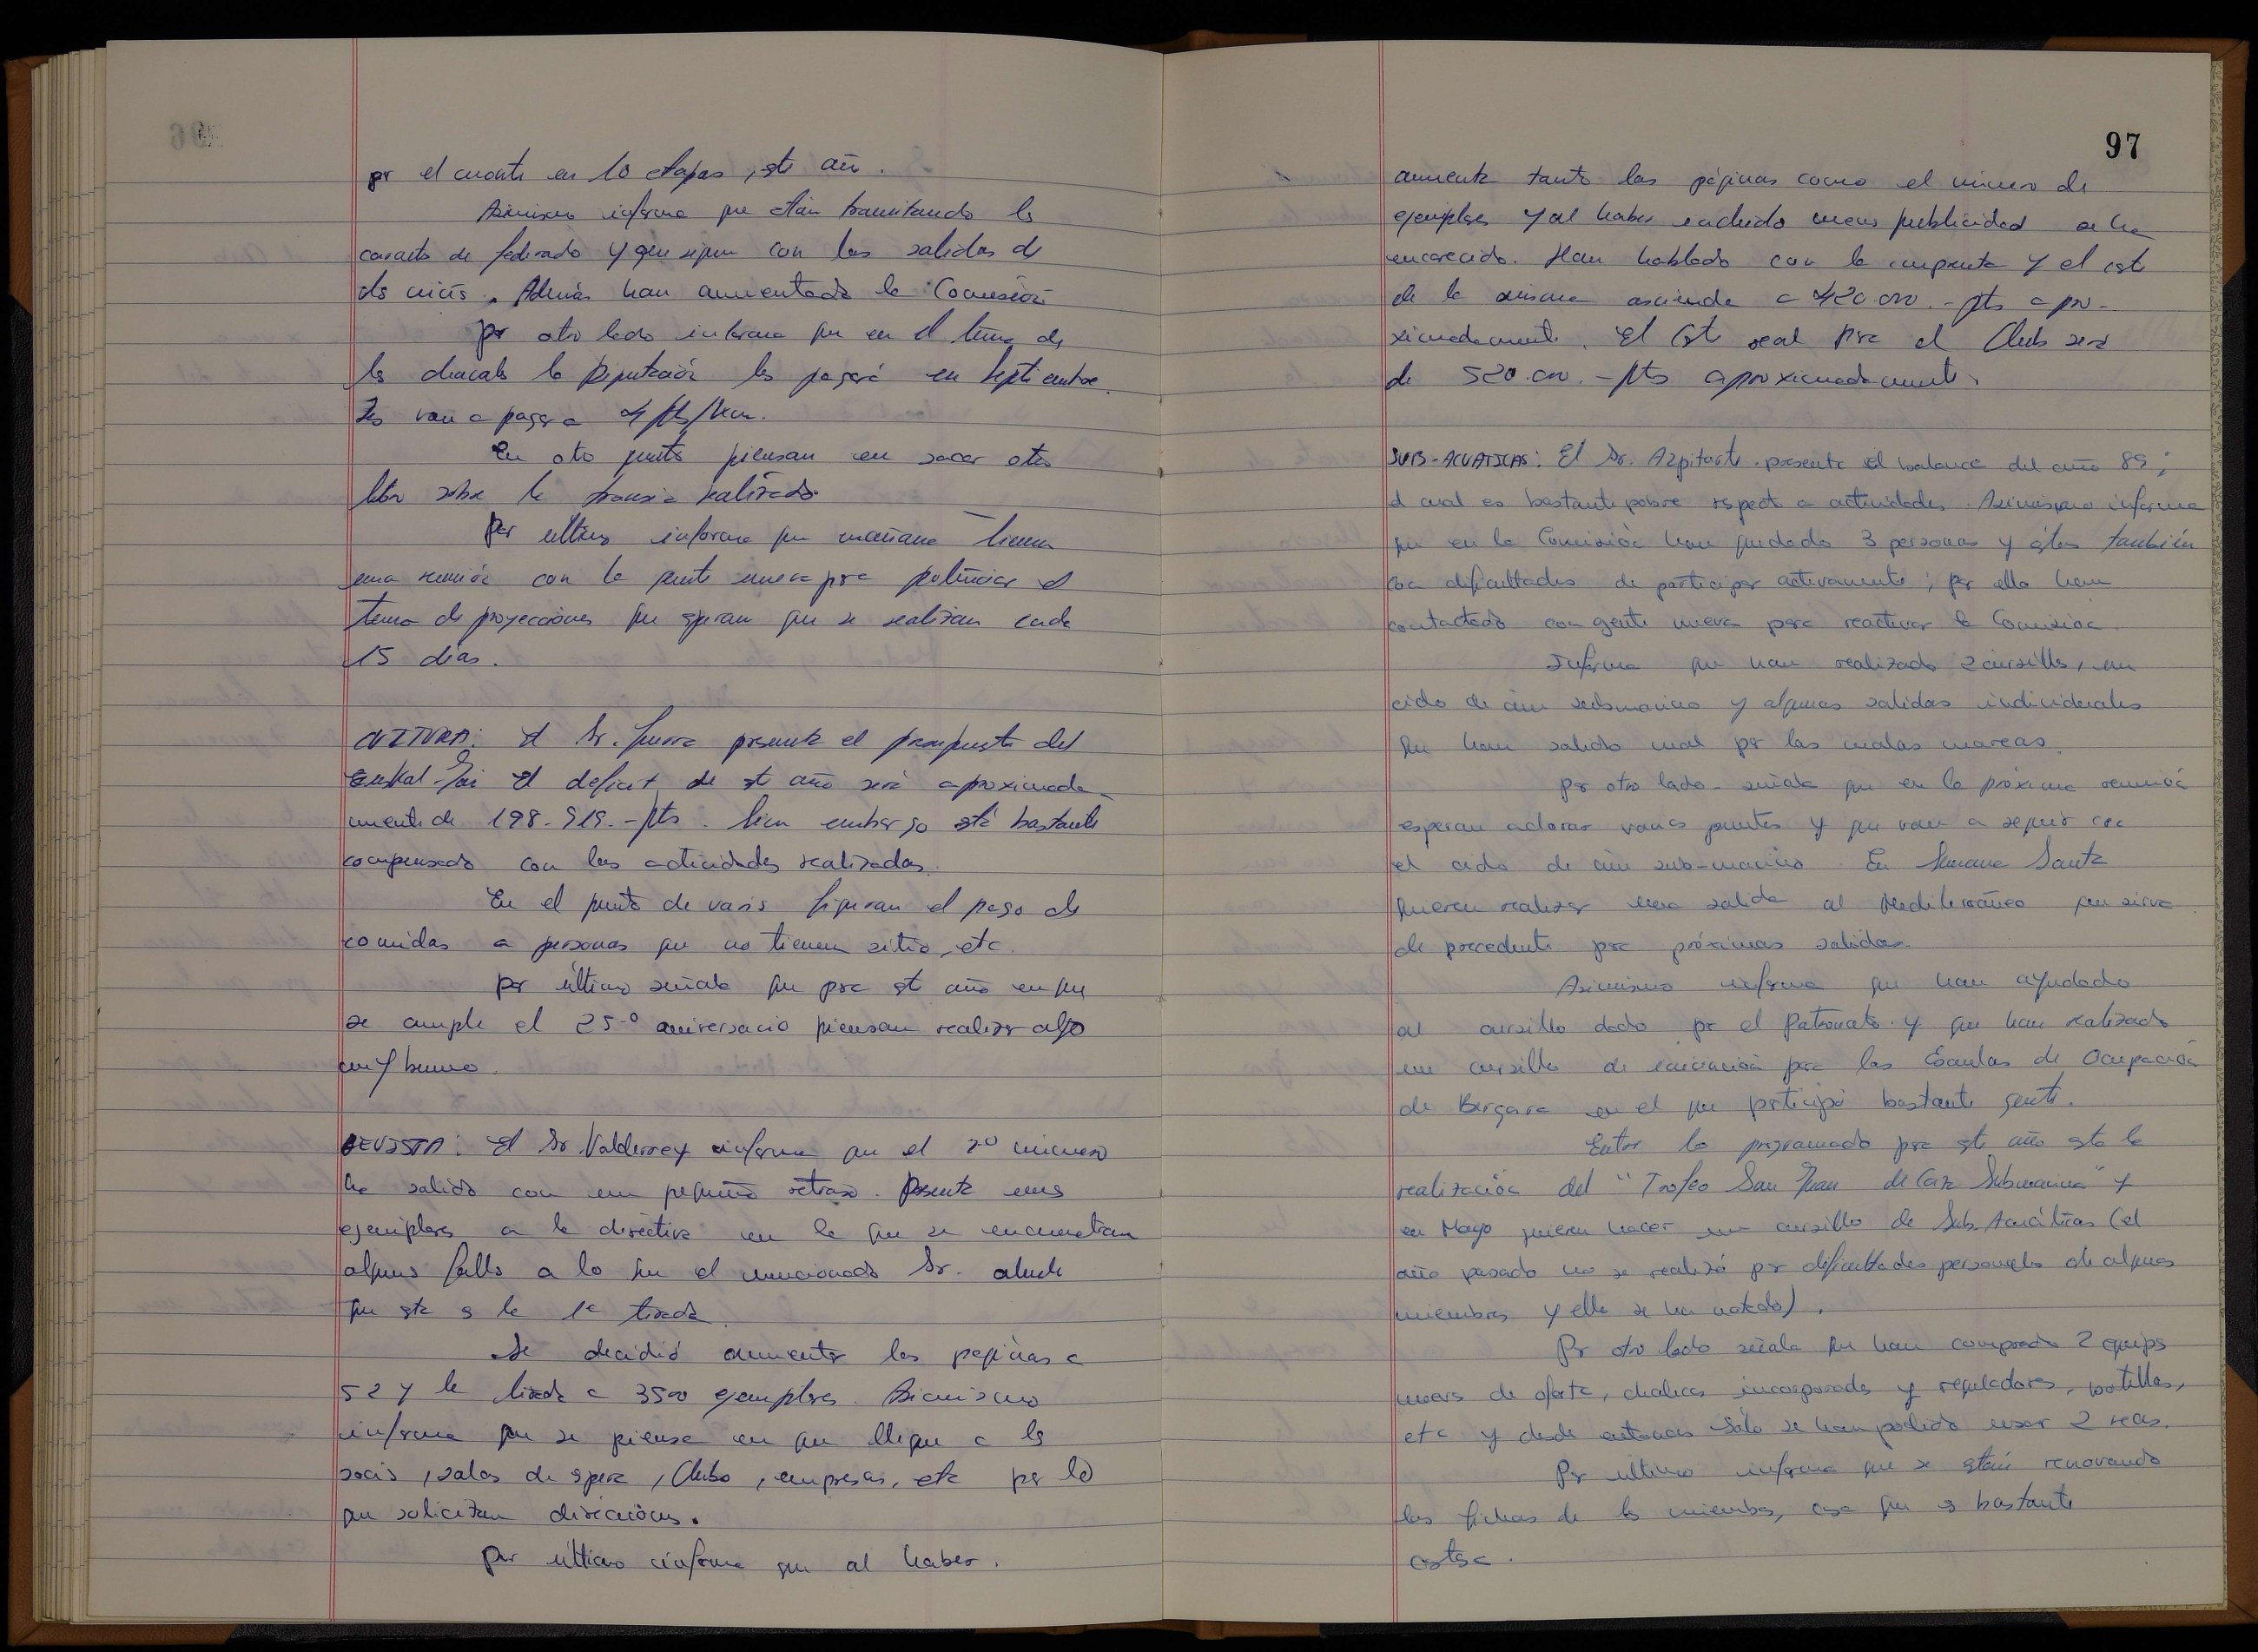 por el cuarte en 10 etapas, este año.
Asimismo informa que están tramitando los
carnets de federado y que siguen con las salidas de
los niños. Además han aumentado la Comisión
Por otro lado informa que en el tema de
los chacales la Diputación les pagará en septiembre.
Les van a pagar a 4 pts/km.
En otro punto piensan en sacar otro
libro sobre la travesía realizada.
Por último informa que mañana tienen
una reunión con la gente nueva para potenciar el
tema de proyecciones que esperan que se realizan cada
15 días.
CULTURA: El Sr. Guerra presenta el presupuesto del
Euskal-Jai. El deficit de este año será aproximada-
mente de 198.919.-pts. Sin embargo está bastante
compensado con las actividades realizadas.
En el punto de varios figuran el pago de
comidas a personas que no tienen sitio, etc.
Por último señala que para este año en que
se cumple el 25º aniversario piensan realizar algo
muy bueno.
REVISTA: El Sr. Valderrey informa que el 2º número
ha salido con un pequeño retraso. Presenta unos
ejemplares a la directiva en la que se encuentran
algunos fallos a lo que el mencionado Sr. alude
que esta es la 1ª tirada.
Se decidió aumentar las páginas a
52 y la tirada a 3500 ejemplares. Asimismo
informa que se piensa en que llegue a los
socios, salas de espera, Clubs, empresas, etc por lo
que solicitan direcciones.
Por último informa que al haber.
97
aumentado tanto las páginas como el número de
ejemplares y al haber incluido menos publicidad se ha
encarecido. Han hablado con la imprenta y el coste
de la misma asciende a 420.000.-pts apro-
ximadamente. El coste real para el Club será
de 520.000.-pts aproximadamente.
SUB-ACUATICAS: El Sr. Azpitarte presenta el balance del año 89;
el cual es bastante pobre respecto a actividades. Asimismo informa
que en la Comisión han quedado 3 personas y éstas también
con dificultades de participar activamente; por ello han
contactado con gente nueva para reactivar la Comisión.
Informa que han realizado 2 cursillos, un
ciclo de cine submarino y algunas salidas individuales
que han salido mal por las malas mareas.
Por otro lado señala que en la próxima reunión
esperan aclarar varios puntos y que van a seguir con
el ciclo de cine sub-marino. En Semana Santa
quieren realizar una salida al Mediterráneo que sirva
de precedente para próximas salidas.
Asimismo informa que han ayudado
al cursillo dado por el Patronato y que han realizado
un cursillo de iniciación para las Escuelas de Ocupación
de Bergara en el que participó bastante gente.
Entre lo programado para este año esta la
realización del "Trofeo San Juan de Caza Submarina" y
en Mayo quieren hacer un cursillo de Sub-Acuáticas (el
año pasado no se realizó por dificultades personales de algunos
miembros y ello se ha notado).
Por otro lado señala que han comprado 2 equipos
nuevos de oferta, chalecos incorporados y reguladores, botellas,
etc y desde entonces sólo se han podido usar 2 veces.
Por último informa que se están renovando
las fichas de los miembros, cosa que es bastante
costosa.